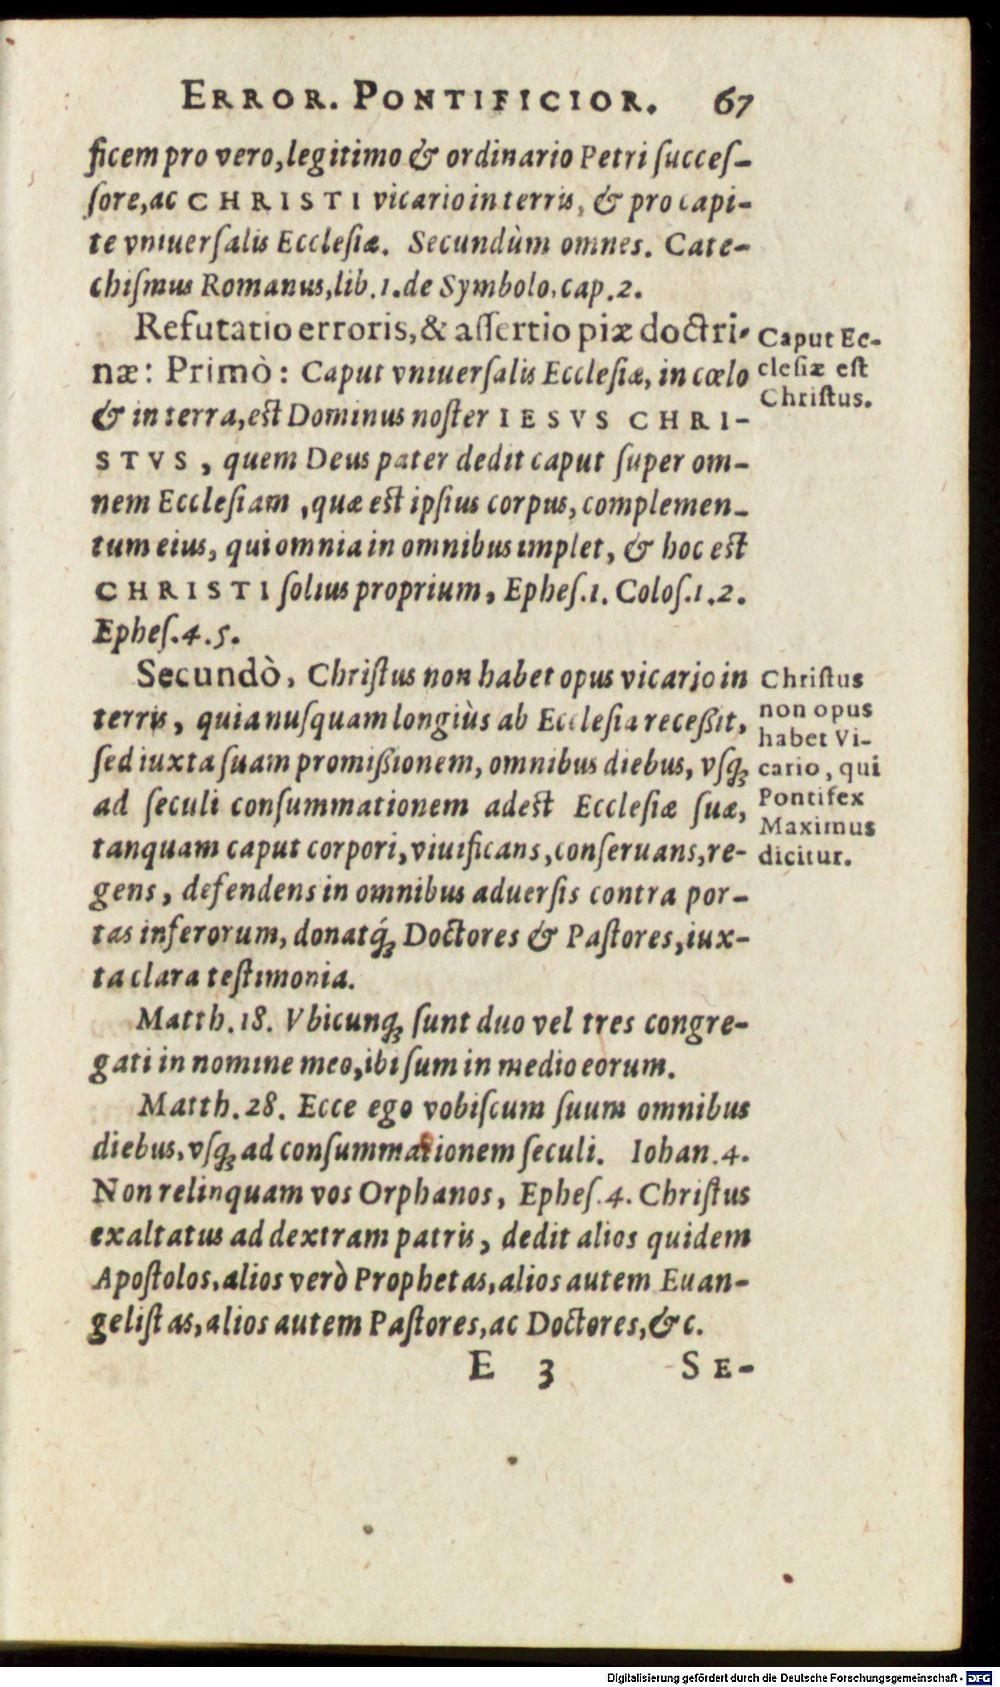 ERROR. PONTIFICIOR. 67
ficem pro vero, legitimo & ordinario Petri succeſ-
ſore, ac CHRISTI vicario in terris, & pro capi-
te vniuerſalis Eccleſiæ. Secundùm omnes. Cate-
chiſmus Romanus, lib. 1. de Symbolo, cap. 2.
Refutatio erroris, & aſſertio piæ doctri-
næ: Primò: Caput vniuerſalis Eccleſiæ, in cœlo
& in terra, eſt Dominus noſter IESVS CHRI-
STVS, quem Deus pater dedit caput ſuper om-
nem Eccleſiam, quæ eſt ipſius corpus, complemen-
tum eius, qui omnia in omnibus implet, & hoc eſt
CHRISTI ſolius proprium, Epheſ. 1. Coloſ. 1. 2.
Epheſ. 4. 5.
Caput Ec-
cleſiæ eſt
Chriſtus.
Secundò, Chriſtus non habet opus vicario in
terris, quia nuſquam longiùs ab Eccleſia receßit,
ſed iuxta ſuam promißionem, omnibus diebus, vſq;
ad ſeculi conſummationem adeſt Eccleſiæ ſuæ,
tanquam caput corpori, viuificans, conſeruans, re-
gens, defendens in omnibus aduerſis contra por-
tas inferorum, donatq́; Doctores & Paſtores, iux-
ta clara teſtimonia.
Chriſtus
non opus
habet Vi-
cario, qui
Pontifex
Maximus
dicitur.
Matth. 18. Vbicunq; ſunt duo vel tres congre-
gati in nomine meo, ibi ſum in medio eorum.
Matth. 28. Ecce ego vobiſcum ſuum omnibus
diebus, vſq; ad conſummationem ſeculi. Iohan. 4.
Non relinquam vos Orphanos, Epheſ. 4. Chriſtus
exaltatus ad dextram patris, dedit alios quidem
Apoſtolos, alios verò Prophetas, alios autem Euan-
geliſtas, alios autem Paſtores, ac Doctores, &c.
E 3 SE-
Digitalisierung gefördert durch die Deutsche Forschungsgemeinschaft - DFG